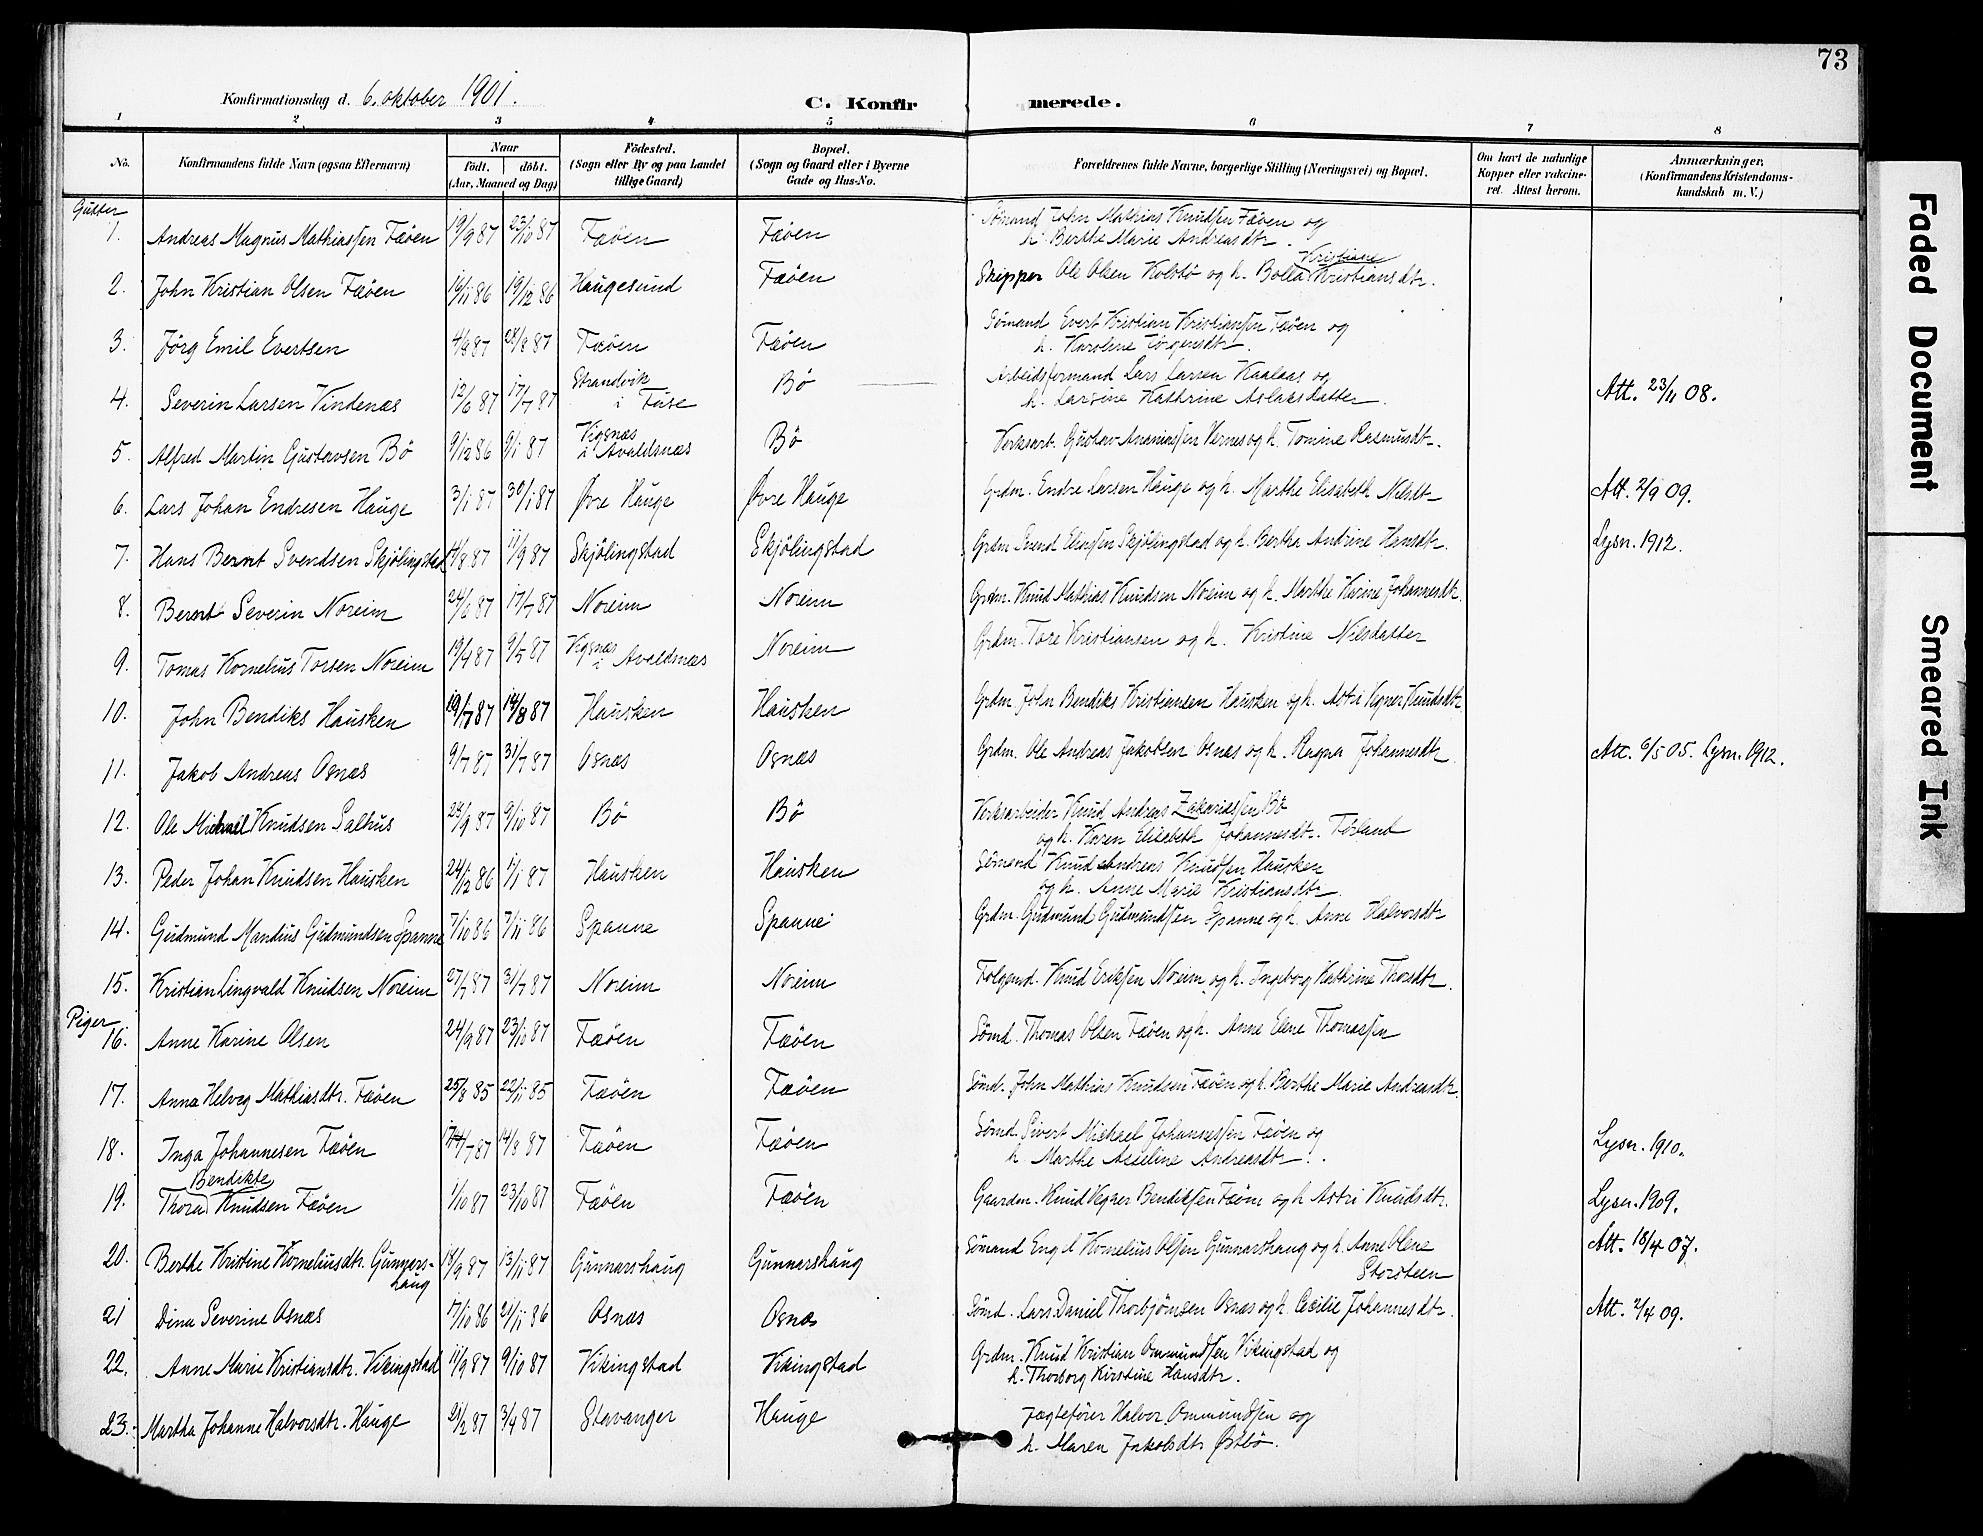 73
Konfirmationsdag d. 6. oktober 1901.
C. Konfirmerede.
1 2 3 4 5 6 7 8
No.
Konfirmandens fulde Navn (ogsaa Efternavn)
Naar
födt. döbt.
(Aar, Maaned og Dag)
Födested.
(Sogn eller By og paa Landet
tillige Gaard)
Bopæl.
(Sogn og Gaard eller i Byerne
Gade og Hus-No.
Forældrenes fulde Navne, borgerlige Stilling (Næringsvei) og Bopæl.
Om havt de naturlige
Kopper eller vakcine-
ret. Attest herom.
Anmærkninger.
(Konfirmandens Kristendoms-
kundskab m. V.)
Gutter
1. Andreas Magnus Mathiassen Fæöen 19/9 87 23/10 87 Fæöen Fæöen Sömand John Mathias Knudsen Fæöen og
h. Berthe Marie Andreasdtr.
2. John Kristian Olsen Fæöen 16/11 86 19/12 86 Haugesund Fæöen Skipper Ole Olsen Kolstö og h. Bolla Kristiane Kristiansdtr.
3. Jörg Emil Evertsen 4/8 87 28/8 87 Fæöen Fæöen Sömand Evert Kristian Kristiansen Fæöen og
h. Karoline Jörgensdtr.
4. Severin Larsen Vindenæs 12/6 87 17/7 87 Strandvik i Fuse Bö Arbeidsformand Lars Larsen Kaalaas og
h. Larsine Kathrine Aslaksdatter. Att. 23/11 08.
5. Alfred Martin Gustavsen Bö 9/12 86 9/1 87 Vigsnæs i Avaldsnæs Bö Verksarb. Gustav Ananiassen Vernes og h. Tomine Rasmusdtr.
6. Lars Johan Endresen Hauge 3/1 87 30/1 87 Øvre Hauge Øvre Hauge Grdm. Endre Larsen Hauge og h. Marthe Elisabeth Nilsdtr Att. 2/9 09.
7. Hans Bernt Svendsen Skjölingstad 14/8 87 11/9 87 Skjölingstad Skjölingstad Grdm Svend Eliassen Skjölingstad og h. Bertha Andrine Hansdtr. Lysn. 1912.
8. Bernt Severin Noreim 24/6 87 17/7 87 Noreim Noreim Grdm. Knud Mathias Knudsen Noreim og h. Marthe Karine Johannesdtr.
9. Tomas Kornelius Torsen Noreim 19/4 87 9/5 87 Vigsnæs i Avaldsnæs Noreim Grdm. Tore Kristiansen og h. Kristine Nilsdatter
10. John Bendiks Hausken 19/7 87 14/8 87 Hausken Hausken Grdm. John Bendiks Kristiansen Hausken og h. Astri Vegner Knudsdtr
11. Jakob Andreas Osnæs 9/7 87 31/7 87 Osnæs Osnæs Grdm. Ole Andreas Jakobsen Osnæs og h. Ragna Johannesdtr Att. 6/5 05. Lysn. 1912.
12. Ole Michael Knudsen Salhus 24/9 87 9/10 87 Bö Bö Verksarbeider Knud Andreas Zakariassen Bö
og h. Karen Elisabeth Johannesdtr. Förland
13. Peder Johan Knudsen Hausken 24/12 86 1/1 87 Hausken Hausken Sömand Knud Andreas Knudsen Hausken
og h. Anne Marie Kristiansdtr.
14. Gudmund Mandius Gudmundsen Spanne 7/10 86 7/11 86 Spanne Spanne Grdm. Gudmund Gudmundsen Spanne og h. Anne Halvorsdtr
15. Kristian Lingvald Knudsen Noreim 27/7 87 31/7 87 Noreim Noreim Folgemd. Knud Eriksen Noreim og h. Ingeborg Kathrine Thorsdtr.
Piger
16. Anne Karine Olsen 24/9 87 23/10 87 Fæöen Fæöen Sömd. Thomas Olsen Fæöen og h. Anne Elene Thomassen
17. Anna Helveg Mathiasdtr. Fæöen 25/8 85 22/11 85 Fæöen Fæöen Sömd. John Mathias Knudsen Fæöen og h. Berthe Marie Andreasdtr.
18. Inga Johannesen Fæöen /7 87 14/8 87 Fæöen Fæöen Sömd. Sivert Michael Johannessen Fæöen og
h Marthe Aseline Andreasdtr. Lysn. 1910.
19. Thora Bendikte Knudsen Fæöen 1/10 87 23/10 87 Fæöen Fæöen Gaardm. Knud Vegner Bendiksen Fæöen og h Astri Knudsdtr. Lysn. 1909.
20. Berthe Kristine Korneliusdtr. Gunnars-
haug 14/9 87 13/11 87 Gunnarshaug Gunnarshaug Sömand Engel Kornelius Olsen Gunnarshaug og h. Anne Olene
Storsteen Att. 18/4 07.
21 Dina Severine Osnæs 17/10 86 21/11 86 Osnæs Osnæs Sömd. Lars Daniel Thorbjörnsen Osnæs og h. Cecilie Johannesdtr. Att. 2/4 09.
22. Anne Marie Kristiansdtr. Vikingstad 11/9 87 9/10 87 Vikingstad Vikingstad Grdm. Knud Kristian Ommundsen Vikingstad og
h. Thorborg Kirstine Hansdtr.
23. Martha Johanne Halvorsdtr. Hauge 21/2 87 3/4 87 Stavanger Hauge Jægtefører Halvor Ommundsen og
h. Maren Jakobsdtr Østbö.
Faded Document
Smeared Ink